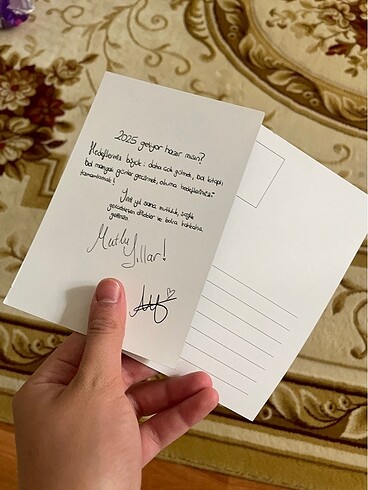 2025 geliyor hazır mısın?
Hedeflerimiz büyük: daha çok gülmek, bol kitaplı,
bol manyak günler geçirmek, okuma hedeflerimizi
tamamlamak!
Yeni yıl sana mutluluk, sağlık
gerçekleşen dilekler ve bolca kahkaha
getirsin.
Mutlu
Yıllar!